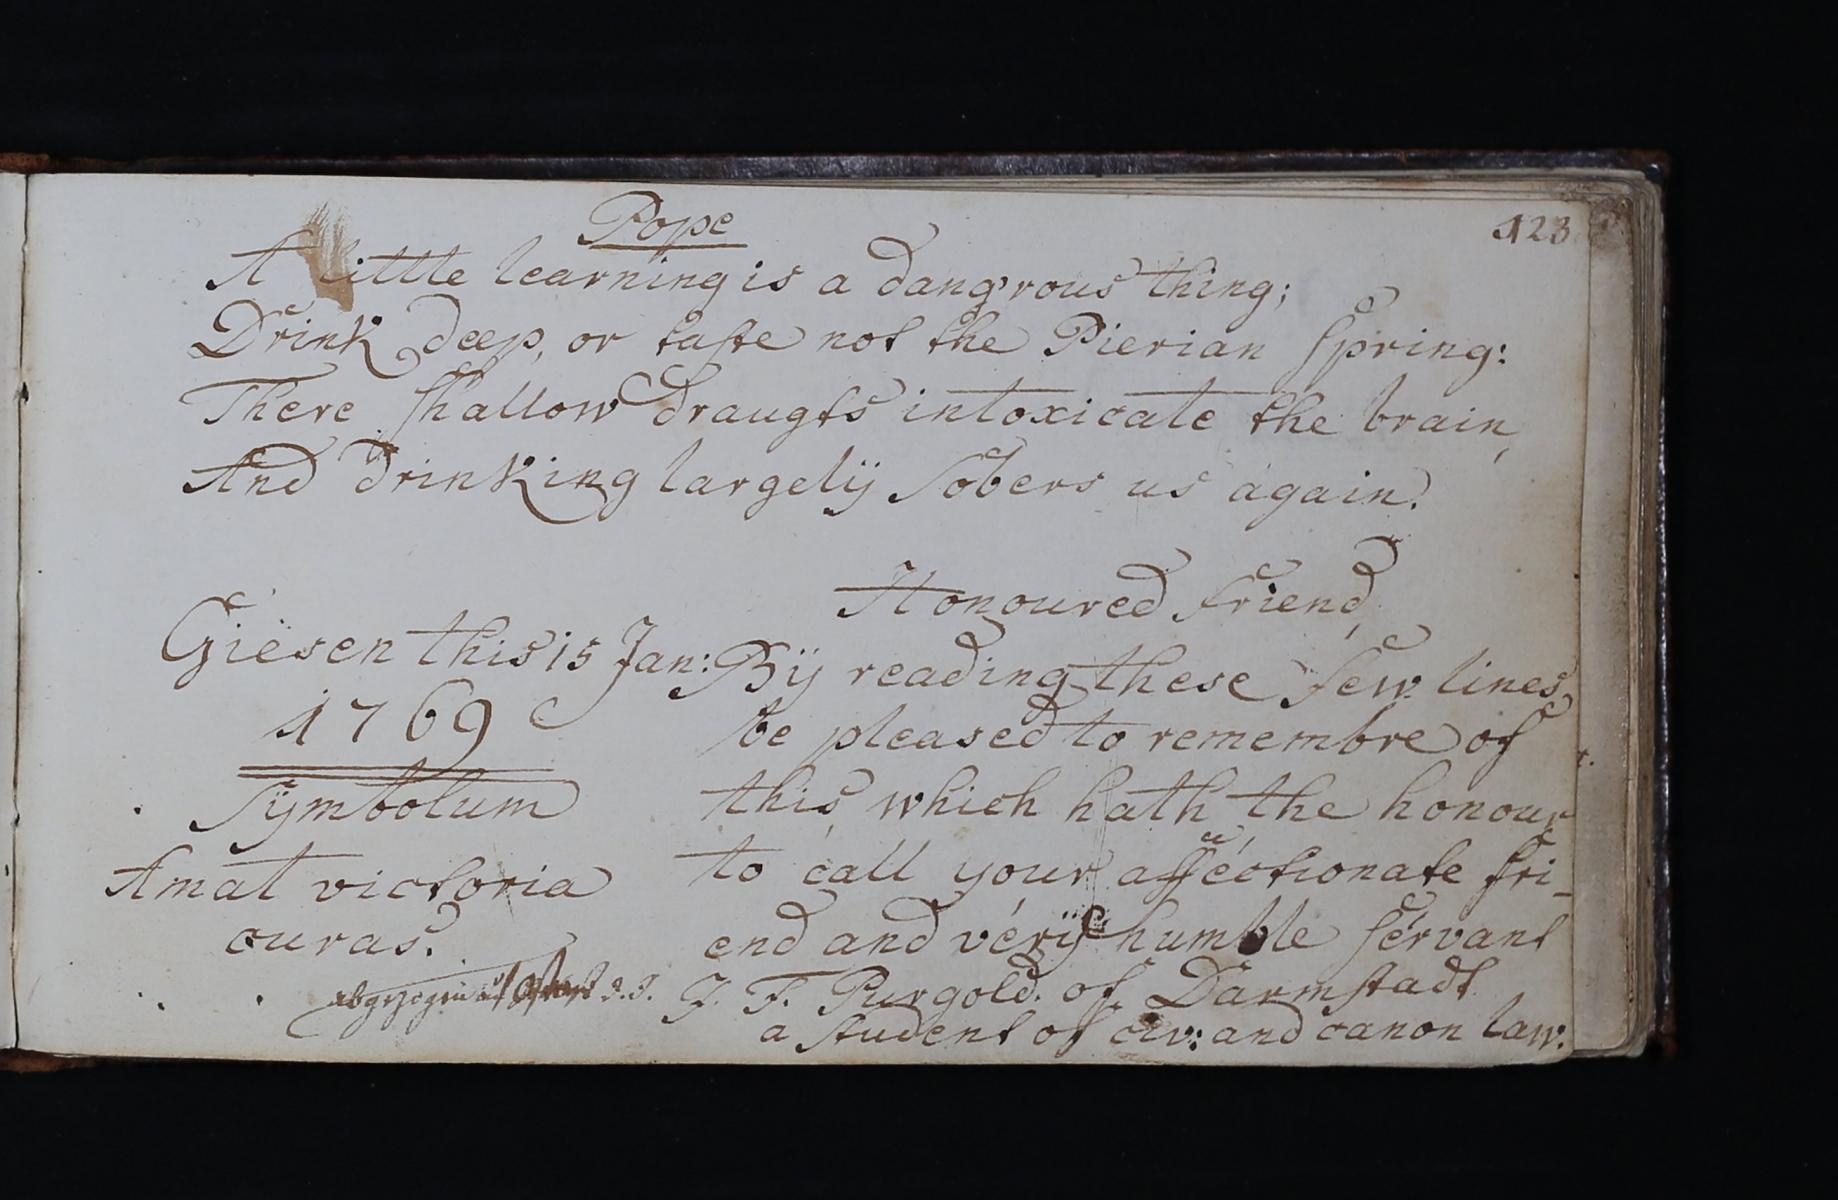 423
Pope
A little learning is a dang'rous thing;
Drink deep, or taste not the Pierian Spring:
There shallow draugts intoxicate the brain,
And drinking largelÿ sobers us again.
Honoured friend,
Giesen this 15 Jan:
1769
Sÿmbolum
Amat victoria
curas.
abgezogen auf d. J.
Bÿ reading these few lines,
be pleased to remembre of
this which hath the honour
to call your affectionate fri-
end and verÿ humble servant
J. F. Purgold. of Darmstadt
a student of civ: and canon law.